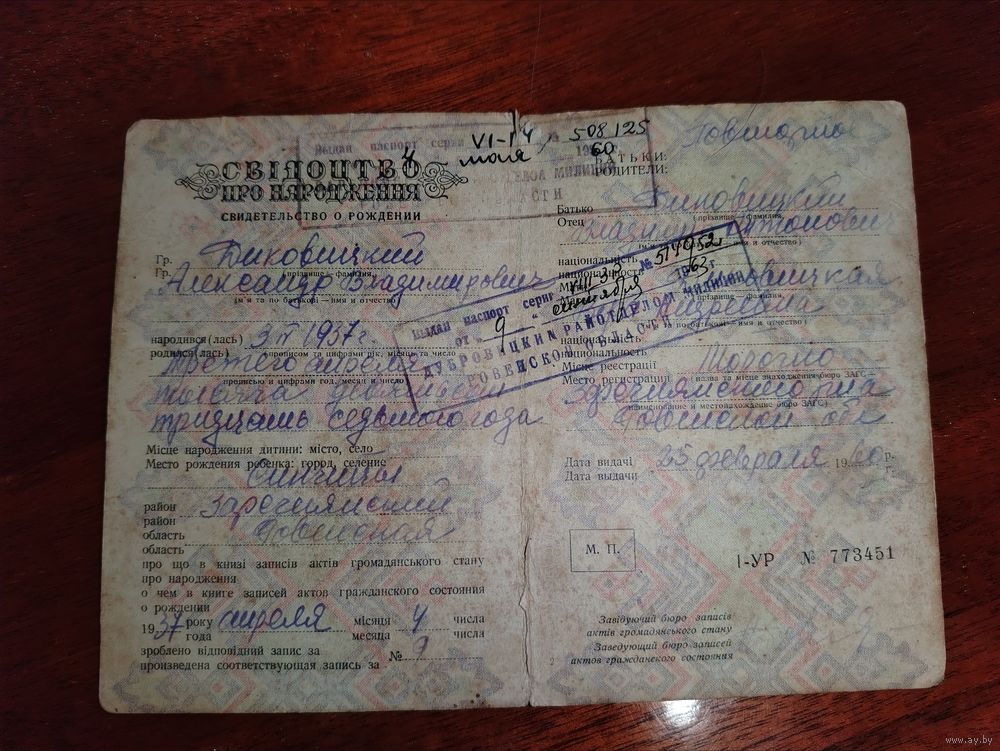 СВІДОЦТВО
ПРО НАРОДЖЕННЯ
СВИДЕТЕЛЬСТВО О РОЖДЕНИИ
Гр. Диковицкий
Гр. (прізвище — фамилия)
Александр Владимирович
(ім'я та по батькові — имя и отчество)
народився(лась) 3.IV 1937 г.
родился(лась) (прописом та цифрами рік, місяць та число
третего апреля
прописью и цифрами год, месяц и число)
тысяча девятьсот
тридцать седьмого года
Місце народження дитини: місто, село
Место рождения ребенка: город, селение
район Заречнянский
район
область Ровенская
область
про що в книзі записів актів громадянського стану
про народження
о чем в книге записей актов гражданского состояния
о рождении
1937 року апреля місяця 4 числа
года месяца числа
зроблено відповідний запис за
произведена соответствующая запись за № 9
Выдан паспорт серии VI-ГЧ № 508125
мая 60
БАТЬКИ:
РОДИТЕЛИ:
Батько Диковицкий
Отец (прізвище — фамилия)
Владимир Антонович
(ім'я та по батькові — имя и отчество)
національність
национальность
Выдан паспорт серии № 574452
от « 9 » сентября 1963 г.
ДУБРОВИЦКИМ РАЙОТДЕЛОМ МИЛИЦИИ
РОВЕНСКОЙ ОБЛАСТИ
прізвище — фамилия)
національність
национальность
Місце реєстрації
Место регистрации (назва та місце знаходження бюро ЗАГС
Заречнянского р-на
наименование и местонахождение бюро ЗАГС)
Ровенской обл
Дата видачі 25 февраля 1960 р.
Дата выдачи г.
М. П.
I-УР № 773451
Завідуючий бюро записів
актів громадянського стану
Заведующий бюро записей
актов гражданского состояния
2
www.ay.by